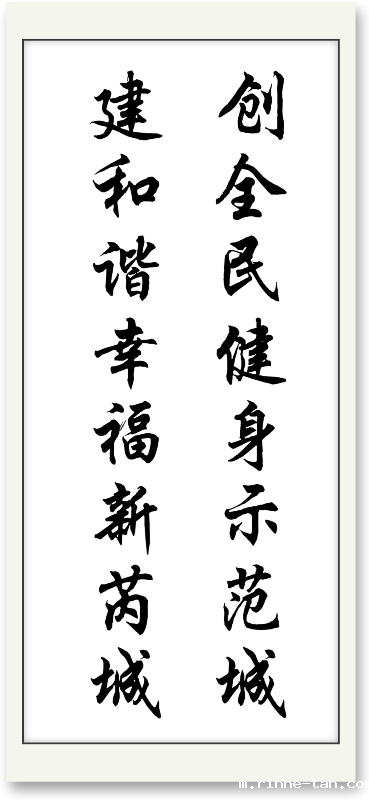 创全民健身示范城
建和谐幸福新芮城
m.rinne-tan.co